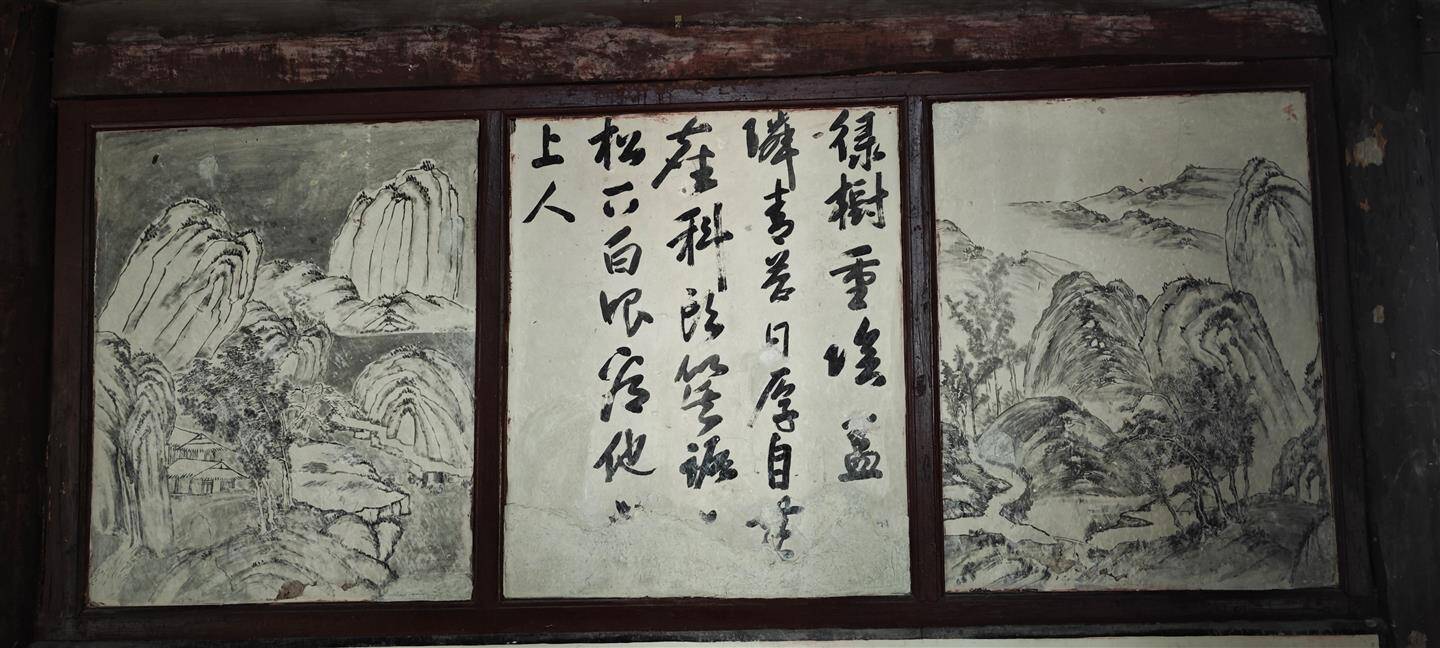 緑樹重陰盖
隣青苔日厚自無
塵科頭箕踞
松下白眼看他
上人